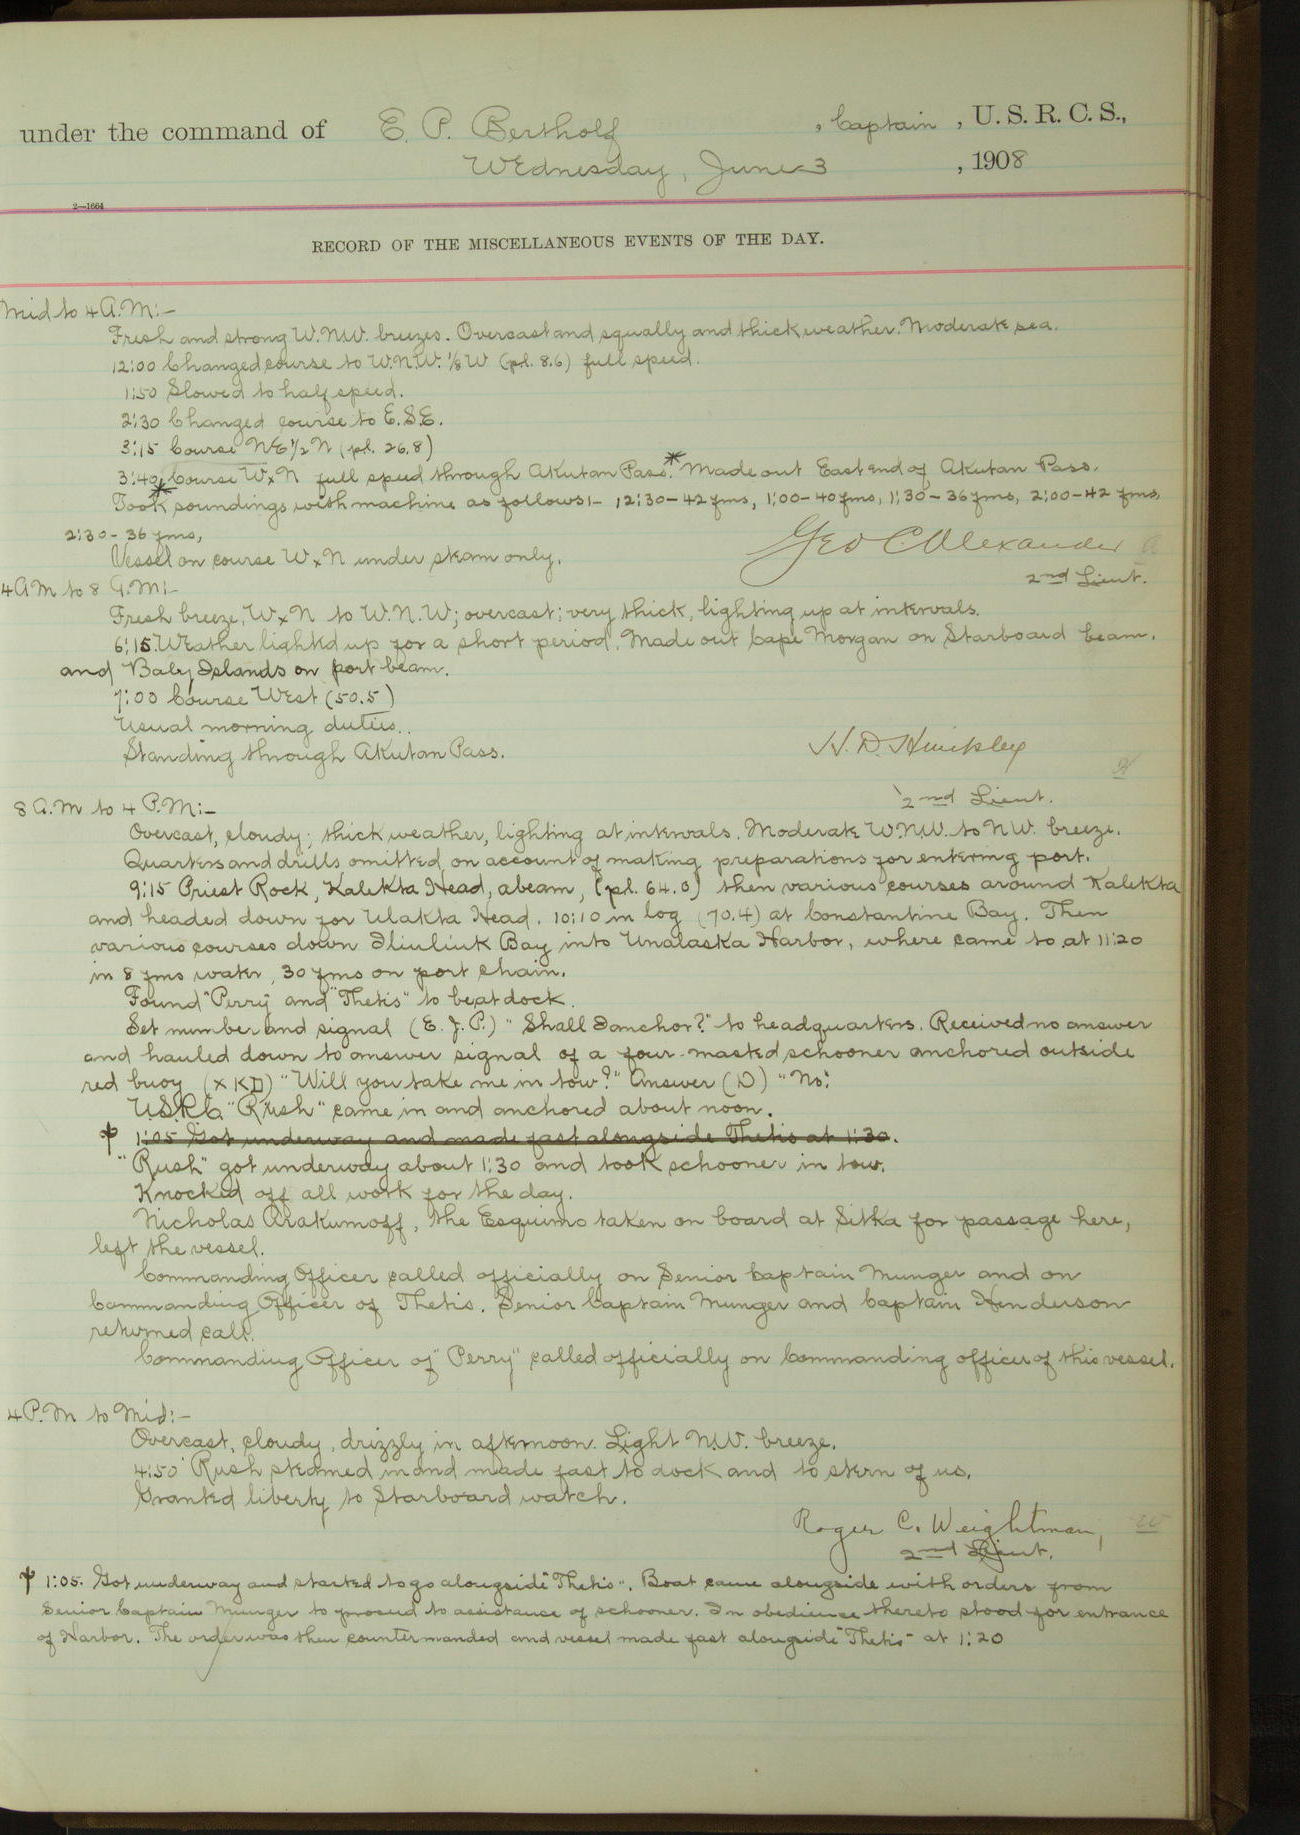 under the command of E. P. Bertholf, Captain, U. S. R. C. S.,
Wednesday, June 3, 1908
2—1664
RECORD OF THE MISCELLANEOUS EVENTS OF THE DAY.
Mid to 4 A.M:-
Fresh and strong W.NW. breezes. Overcast and squally and thick weather. Moderate sea.
12:00 Changed course to W.N.W. 1/8 W (pl. 8.6) full speed.
1:50 Slowed to half speed.
2:30 Changed course to E.S.E.
3:15 Course NE 1/2 N (pl. 26.8)
3:40 Course WxN full speed through Akutan Pass.* Made out East end of Akutan Pass.
* Took soundings with machine as follows:- 12:30-42 fms, 1:00-40 fms, 1:30-36 fms, 2:00-42 fms,
2:30-36 fms,
Vessel on course WxN under steam only.
Geo C Alexander A
2nd Lieut.
4 A M to 8 A.M:-
Fresh breeze, WxN to W.N.W; overcast; very thick, lighting up at intervals.
6:15 Weather lightd up for a short period. Made out Cape Morgan on Starboard beam.
and Baby Islands on port beam.
7:00 Course West (50.5)
Usual morning duties.
Standing through Akutan Pass.
H. D. Hinckley
H
2nd Lieut.
8 A.M to 4 P.M:-
Overcast, cloudy; thick weather, lighting at intervals. Moderate W.NW. to NW. breeze.
Quarters and drills omitted on account of making preparations for entering port.
9:15 Priest Rock, Kalekta Head, abeam, (pl. 64.0) then various courses around Kalekta
and headed down for Ulakta Head. 10:10 in log (70.4) at Constantine Bay. Then
various courses down Iliuliuk Bay into Unalaska Harbor, where came to at 11:20
in 8 fms water, 30 fms on port chain.
Found "Perry" and "Thetis" to be at dock.
Set number and signal (E.J.P.) "Shall I anchor?" to headquarters. Received no answer
and hauled down to answer signal of a four-masted schooner anchored outside
red buoy (X K D) "Will you take me in tow?" Answer (D) "No."
USRC "Rush" came in and anchored about noon.
1:05 Got underway and made fast alongside Thetis at 1:30.
"Rush" got underway about 1:30 and took schooner in tow.
Knocked off all work for the day.
Nicholas Arakumoff, the Esquimo taken on board at Sitka for passage here,
left the vessel.
Commanding Officer called officially on Senior Captain Munger and on
Commanding Officer of Thetis. Senior Captain Munger and Captain Henderson
returned call.
Commanding Officer of "Perry" called officially on Commanding officer of this vessel.
4 P.M to Mid:-
Overcast, cloudy, drizzly in afternoon. Light NW. breeze.
4:50 Rush steamed in and made fast to dock and to stern of us.
Granted liberty to Starboard watch.
Roger C. Weightman, W
2nd Lieut.
1:05. Got underway and started to go alongside "Thetis". Boat came alongside with orders from
Senior Captain Munger to proceed to assistance of schooner. In obedience thereto stood for entrance
of Harbor. The order was then countermanded and vessel made fast alongside "Thetis" at 1:20